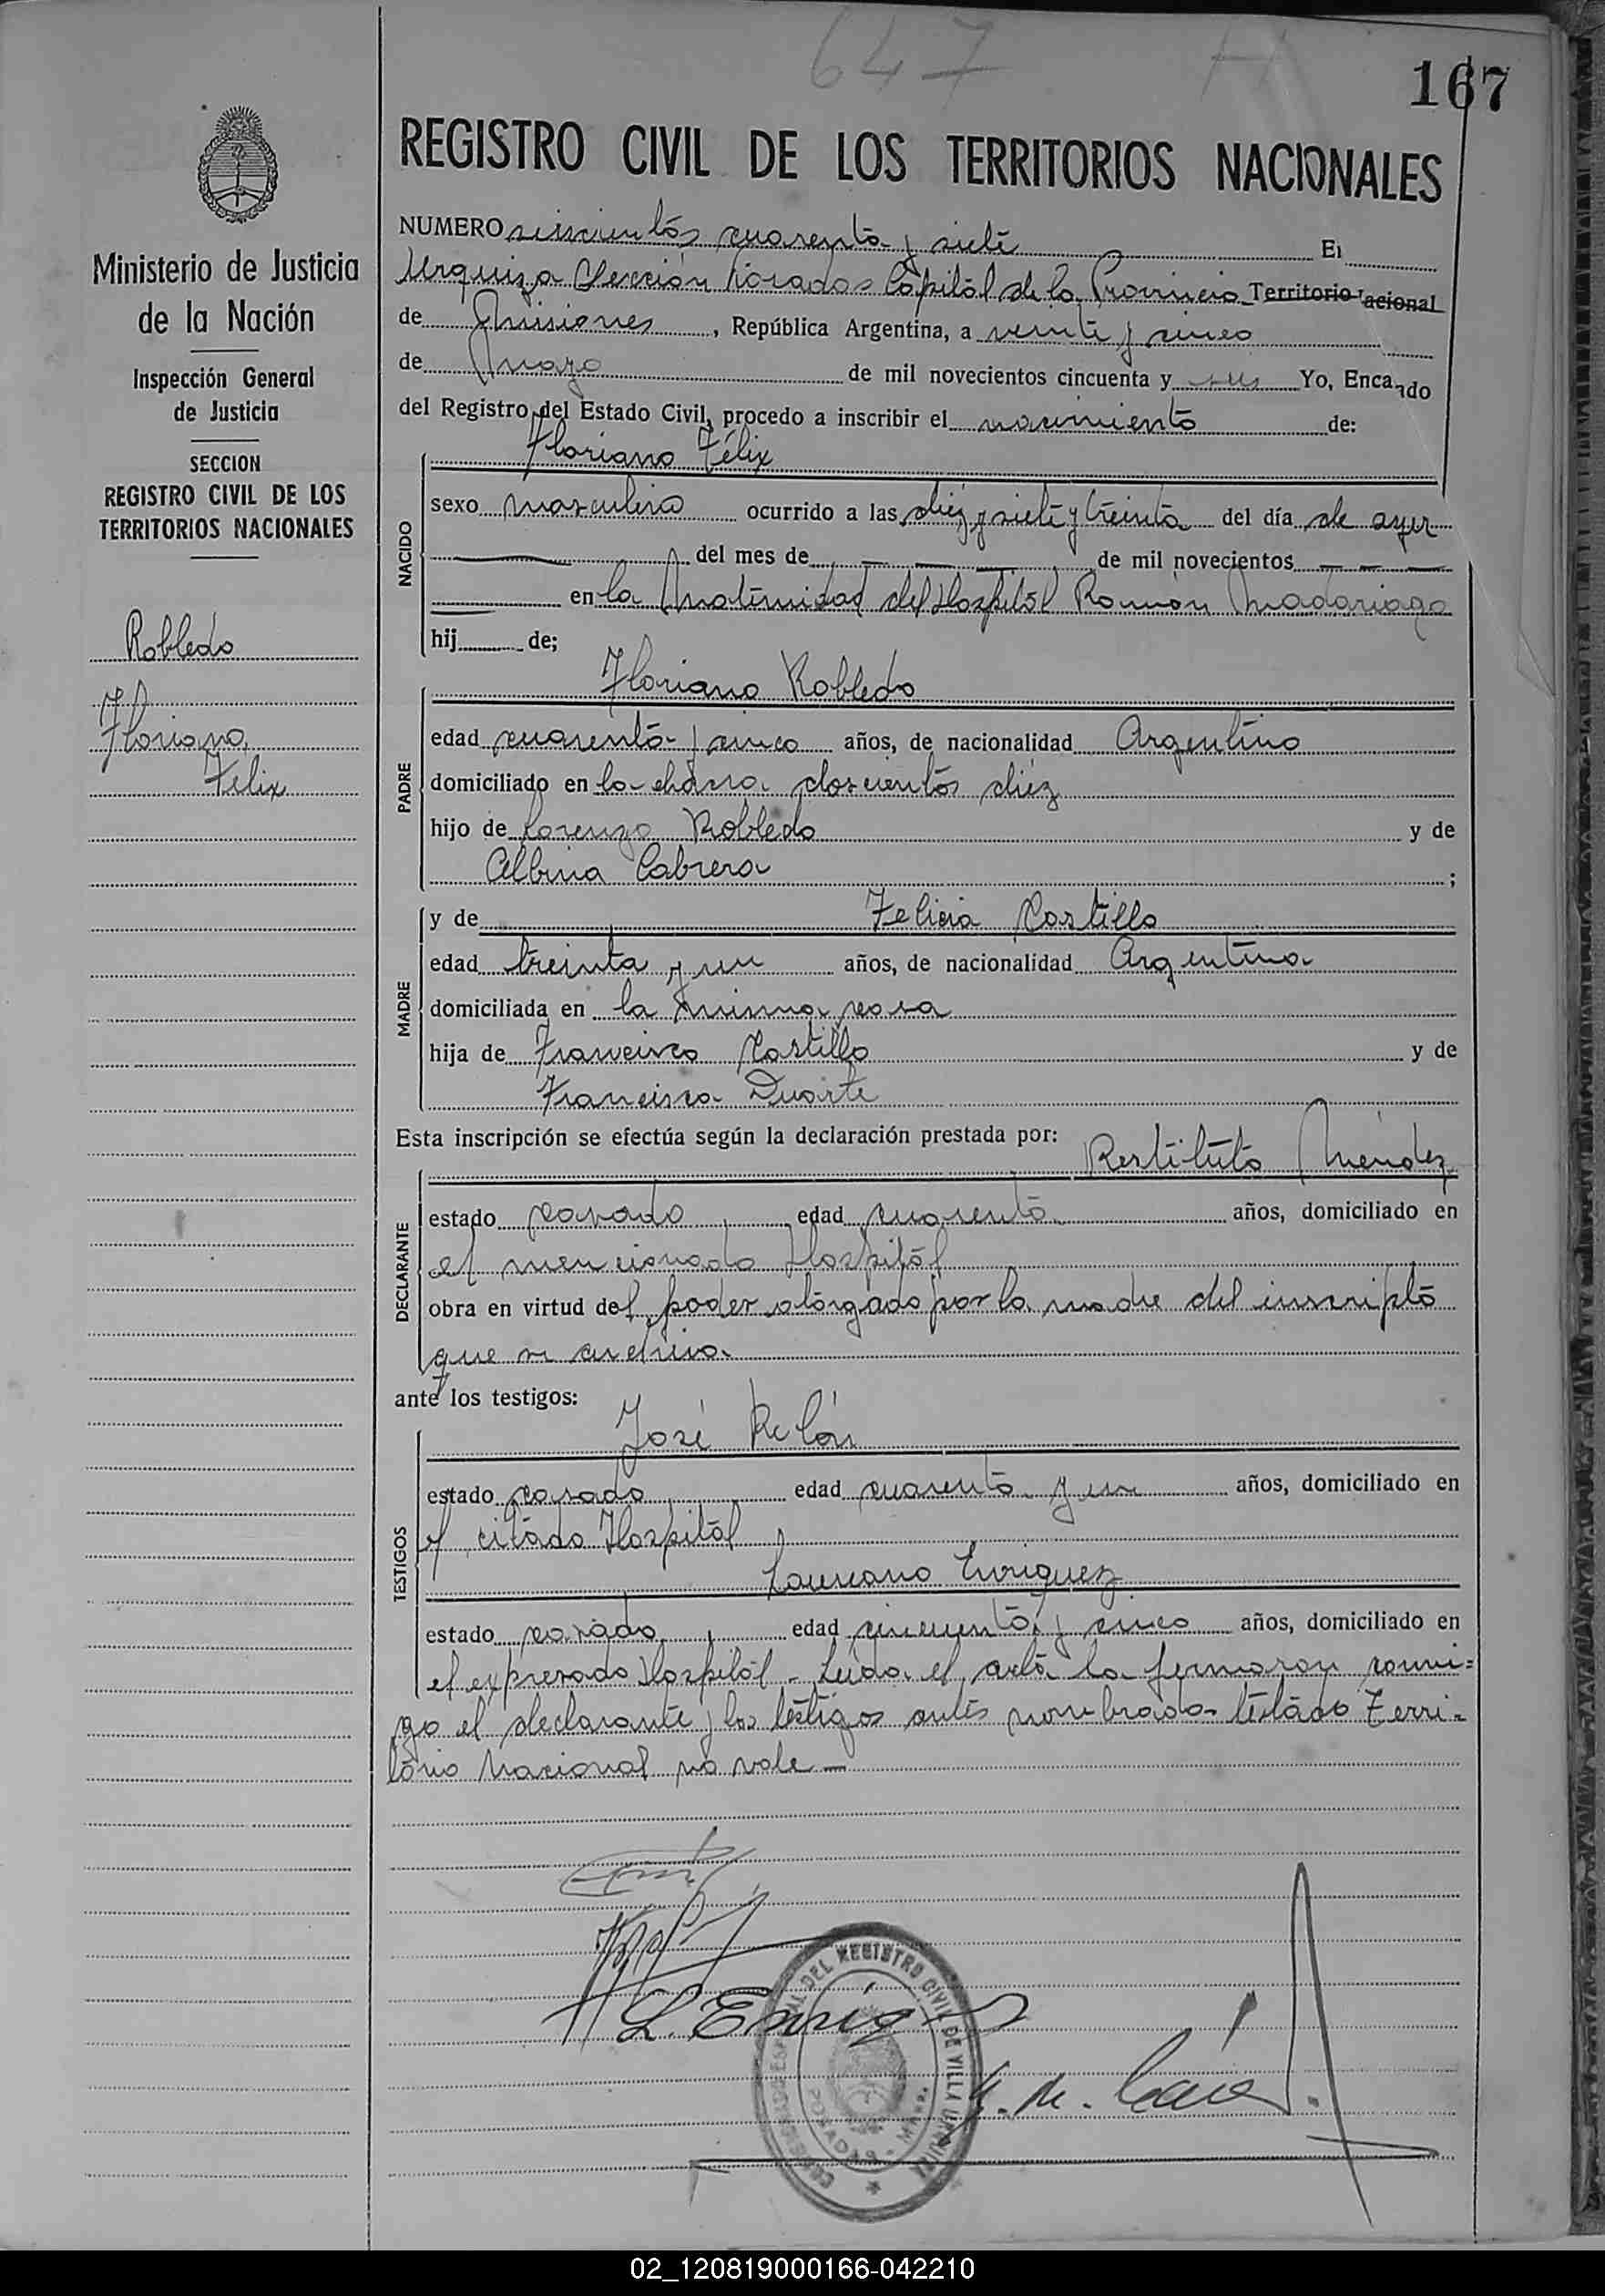 647
167
REGISTRO CIVIL DE LOS TERRITORIOS NACIONALES
Ministerio de Justicia
de la Nación
Inspección General
de Justicia
SECCION
REGISTRO CIVIL DE LOS
TERRITORIOS NACIONALES
Robledo
Floriano
Felix
NUMERO seiscientos cuarenta y siete El
Urquiza Sección Posadas Capital de la Provincia Territorio Nacional
de Misiones, República Argentina, a veinte y cinco
de Mayo de mil novecientos cincuenta y seis Yo, Encargado
del Registro del Estado Civil, procedo a inscribir el nacimiento de:
Floriano Félix
NACIDO
sexo masculino ocurrido a las diez y siete y treinta del día de ayer
del mes de de mil novecientos
en la Maternidad del Hospital Ramón Madariaga
hij de;
Floriano Robledo
PADRE
edad cuarenta y cinco años, de nacionalidad Argentino
domiciliado en la chacra doscientos diez
hijo de Lorenzo Robledo y de
Albina Cabrera ;
y de Felicia Castillo
MADRE
edad treinta y un años, de nacionalidad Argentina
domiciliada en la misma casa
hija de Francisco Castillo y de
Francisca Duarte
Esta inscripción se efectúa según la declaración prestada por: Restituto Méndez
DECLARANTE
estado casado, edad cuarenta años, domiciliado en
el mencionado Hospital
obra en virtud del poder otorgado por la madre del inscripto
que se archiva.
ante los testigos:
José Relán
TESTIGOS
estado casado, edad cuarenta y un años, domiciliado en
el citado Hospital
Laureano Enriquez
estado casado, edad cincuenta y cinco años, domiciliado en
el expresado Hospital - Leida el acta la firmaron conmi=
go el declarante y los testigos antes nombrados - testado Terri=
torio Nacional no vale -
L. Enriq
DEL REGISTRO CIVIL DE VILLA URQUIZA
POSADAS - MNES.
02_120819000166-042210